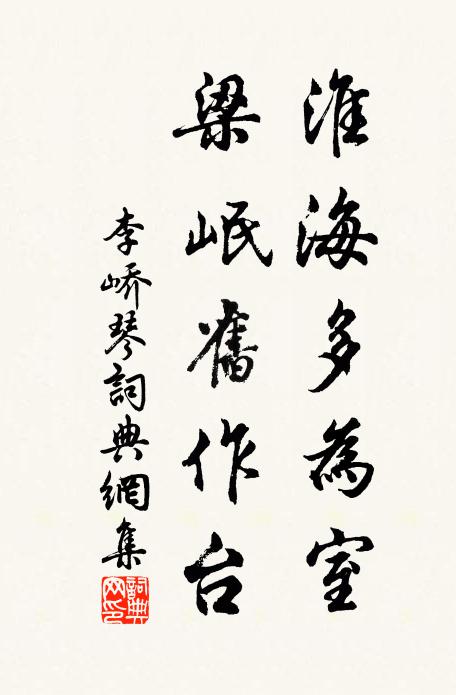 淮海多為室
梁岷舊作台
李嶠琴詞典網集
詞典網印